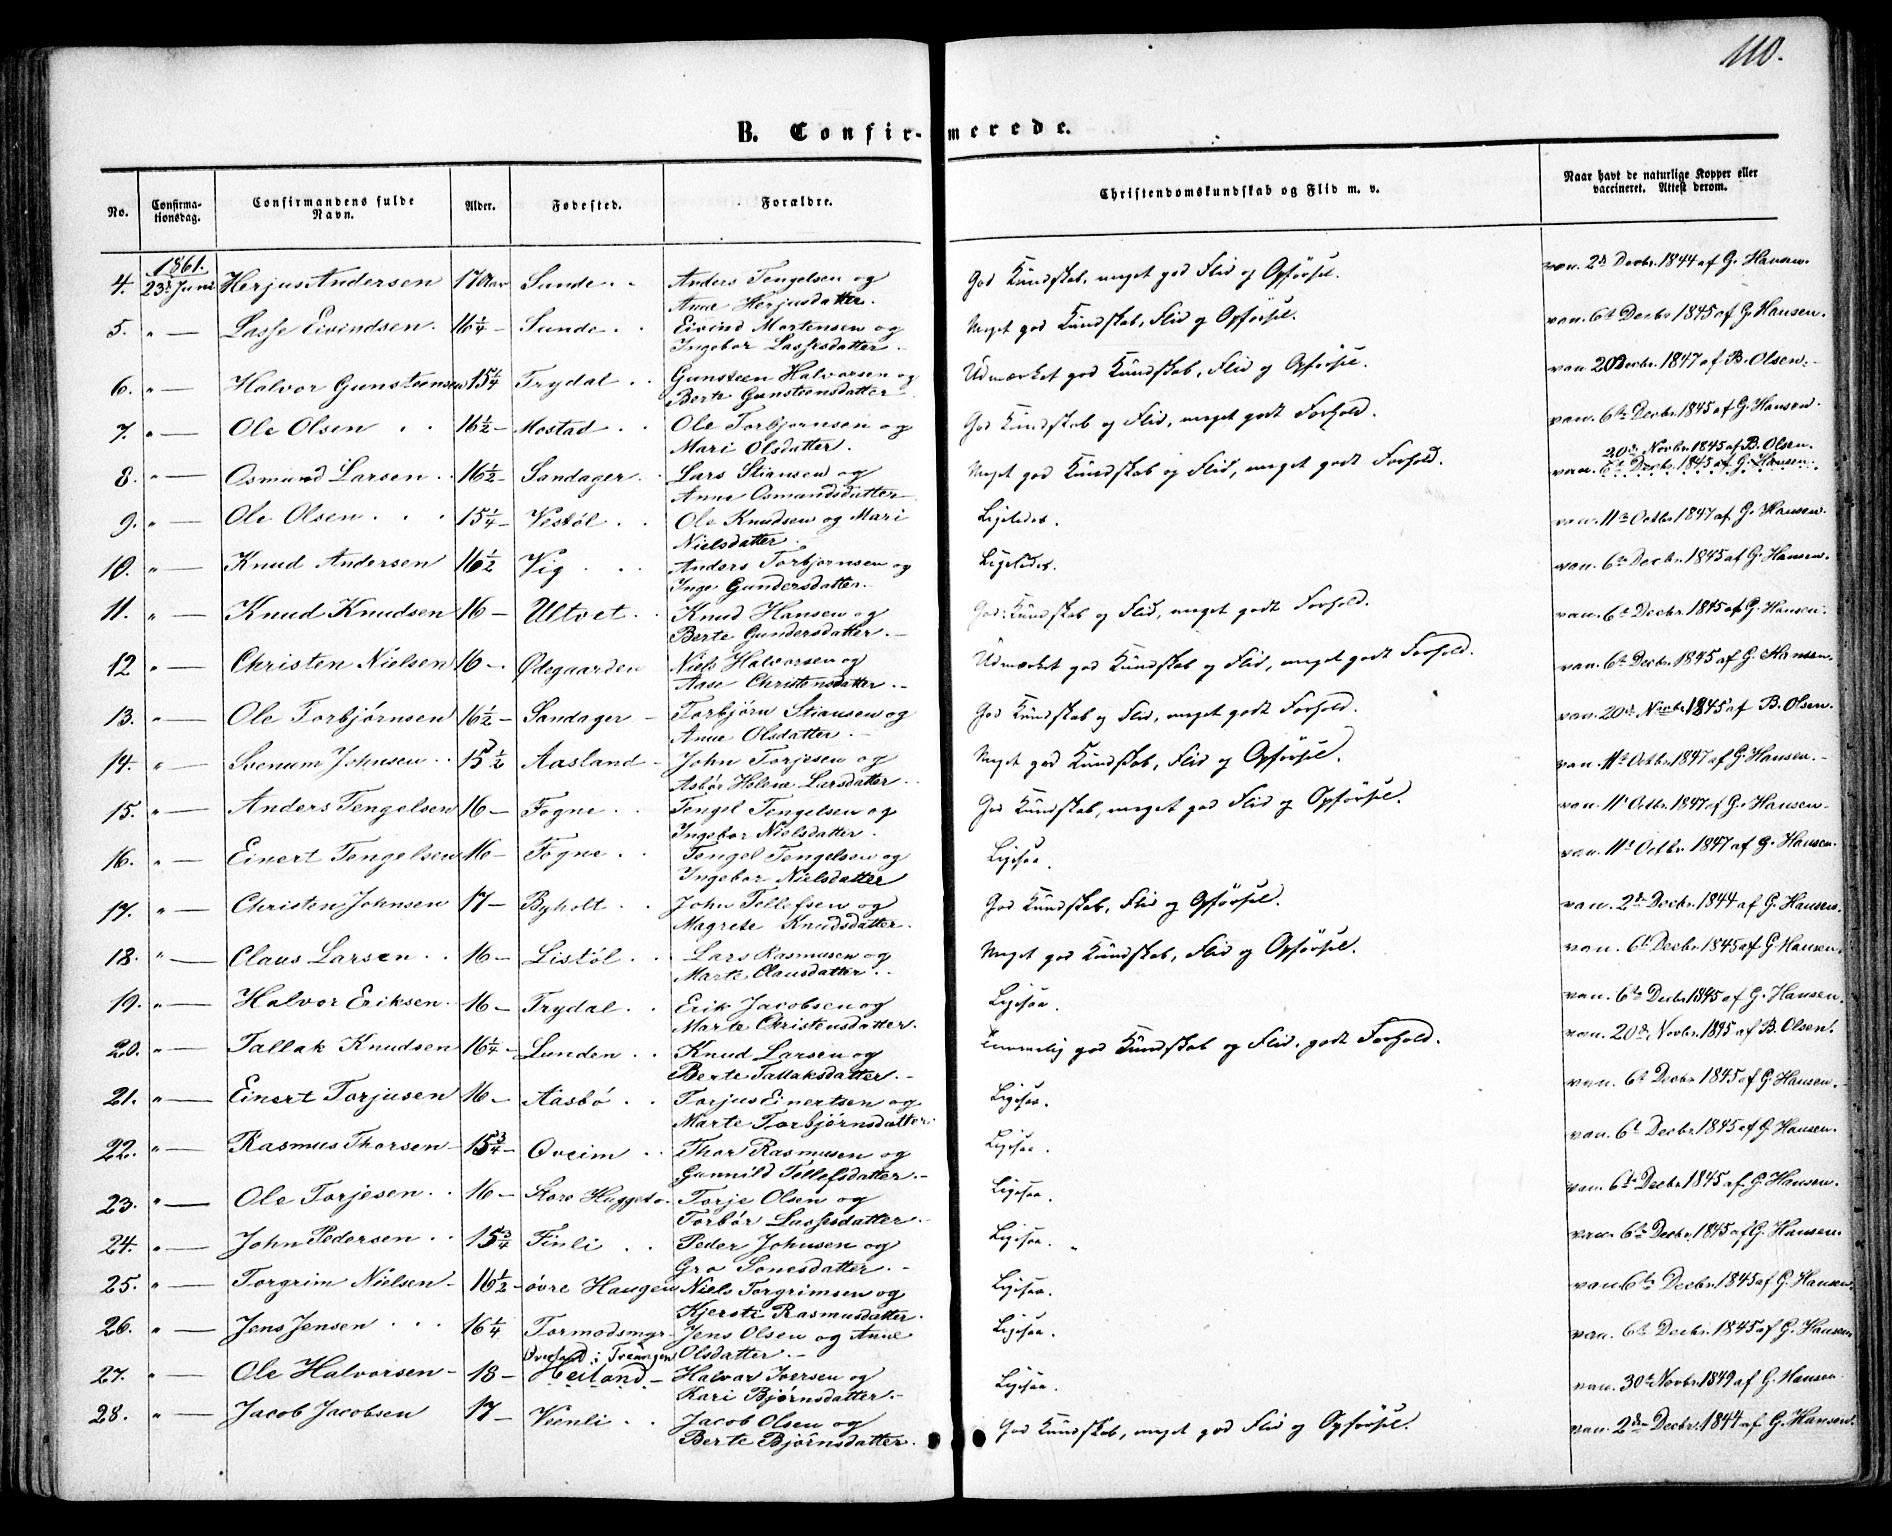 110.
B. Confir- merede.
No. Confirma-tionsdag. Confirmandens fulde Navn. Alder. Fødested. Forældre. Christendomskundskab og Flid m. v. Naar havt de naturlige Kopper eller vaccineret. Attest derom.
1861.
4. 23d Juni Herjus Andersen 17 Aar Sunde Anders Tengelsen og God Kundskab, meget god Flid og Opførsel. vac. 2d Decbr. 1844 af G. Hansen.
Anne Herjusdatter.
5. " — Lasse Eivindsen. 16 1/4 — Sunde Eivind Mortensen og Meget god Kundskab, Flid og Opførsel. vac. 6t Decbr. 1845 af G. Hansen.
Ingebor Lassesdatter.
6. " — Halvor Gunsteensen 15 1/4 Trydal Gunsteen Halvorsen og Udmærket god Kundskab, Flid og Opførsel. vac. 20 Decbr. 1847 af B. Olsen.
Berte Gunsteensdatter
7. " — Ole Olsen 16 1/2 — Mostad Ole Torbjørnsen og God Kundskab og Flid, meget godt Forhold. vac. 6te Decbr. 1845 af G. Hansen.
Mari Olsdatter.
20de Novbr. 1845 af B. Olsen.
8. " — Osmund Larsen 16 1/2 — Sandager Lars Stiansen og Meget god Kundskab og Flid, meget godt Forhold. vac. 6t Decbr. 1845 af G. Hansen.
Anne Osmundsdatter
9. " — Ole Olsen 15 1/4 — Vestøl Ole Knudsen og Mari Ligeledes. vac. 11te Octbr. 1847 af G. Hansen.
Nielsdatter.
10. " — Knud Andersen 16 1/2 Vig Anders Torbjørnsen og Ligeledes. vac. 6te Decbr. 1845 af G. Hansen.
Inge Gundersdatter.
11. " — Knud Knudsen 16 — Ultvet Knud Hansen og God Kundskab og Flid, meget godt Forhold. vac. 6te Decbr. 1845 af G. Hansen.
Berte Gundersdatter.
12 " — Christen Nielsen 16 — Ødegaarden Niels Halvorsen og Udmærket god Kundskab og Flid, meget godt Forhold. vac. 6te Decbr. 1845 af G. Hansen.
Aase Christensdatter.
13. " — Ole Torbjørnsen 16 1/2 — Sandager Torbjørn Stiansen og God Kundskab og Flid, meget godt Forhold. vac. 20de Novbr. 1845 af B. Olsen.
Anne Olsdatter.
14. " — Svenum Johnsen 15 1/2 Aasland John Torjesen og Meget god Kundskab, Flid og Opførsel. vac. 11te Octbr. 1847 af G. Hansen.
Asbør Helene Larsdatter
15. " — Anders Tengelsen 16 — Fogne Tengel Tengelsen og God Kundskab, meget god Flid og Opførsel. vac. 11t Octbr. 1847 af G. Hansen.
Ingebor Nielsdatter.
16. " — Einert Tengelsen 16 — Fogne Tengel Tengelsen og Ligesaa. vac. 11t Octbr. 1847 af G. Hansen.
Ingebor Nielsdatter
17. " — Christen Johnsen 17 — Byholt John Tellefsen og God Kundskab, Flid og Opførsel. vac. 2de Decbr. 1844 af G. Hansen.
Magrete Knudsdatter.
18. " — Claus Larsen 16 — Listøl Lars Rasmusen og Meget god Kundskab, Flid og Opførsel. vac. 6t Decbr. 1845 af G. Hansen.
Marte Clausdatter.
19. " — Halvor Eriksen 16 — Trydal Erik Jacobsen og Ligesaa. vac. 6te Decbr. 1845 af G. Hansen.
Marte Christensdatter.
20. " — Tallak Knudsen 16 1/4 — Lunden Knud Larsen og Temmelig god Kundskab og Flid, godt Forhold. vac. 20de Novbr. 1845 af B. Olsen.
Berte Tallaksdatter.
21. " — Einert Torjusen 16 — Aasbø Torjus Einertsen og Ligesaa. vac. 6t Decbr. 1845 af G. Hansen.
Marte Torbjørnsdatter
22. " — Rasmus Thorsen 15 3/4 — Oveim Thor Rasmusen og Ligesaa. vac. 6t Decbr. 1845 af G. Hansen.
Gunnild Tellefsdatter.
23. " — Ole Torjesen 16 — Store Huggeto Torje Olsen og Ligesaa. vac. 6te Decbr. 1845 af G. Hansen.
Torbør Lassesdatter.
24. " — John Pedersen 15 3/4 Finli Peder Johnsen og Ligesaa. vac. 6te Decbr. 1845 af G. Hansen.
Gro Sonesdatter.
25. " — Torgrim Nielsen 16 1/2 — øvre Haugen Niels Torgrimsen og Ligesaa. vac. 6te Decbr. 1845 af G. Hansen.
Kjersti Rasmusdatter.
26. " — Jens Jensen 16 1/4 Tormodsmyr Jens Olsen og Anne Ligesaa. vac. 6te Decbr. 1845 af G. Hansen
i Treungen Olsdatter.
27. " — Ole Halvorsen 18 — Heiland Halvor Iversen og Ligesaa. vac. 30te Novbr. 1849 af G. Hansen
Kari Bjørnsdatter.
28. " — Jacob Jacobsen 17 — Veenli Jacob Olsen og God Kundskab, meget god Flid og Opførsel. vac. 2den Decbr. 1844 af G. Hansen.
Berte Bjørnsdatter.